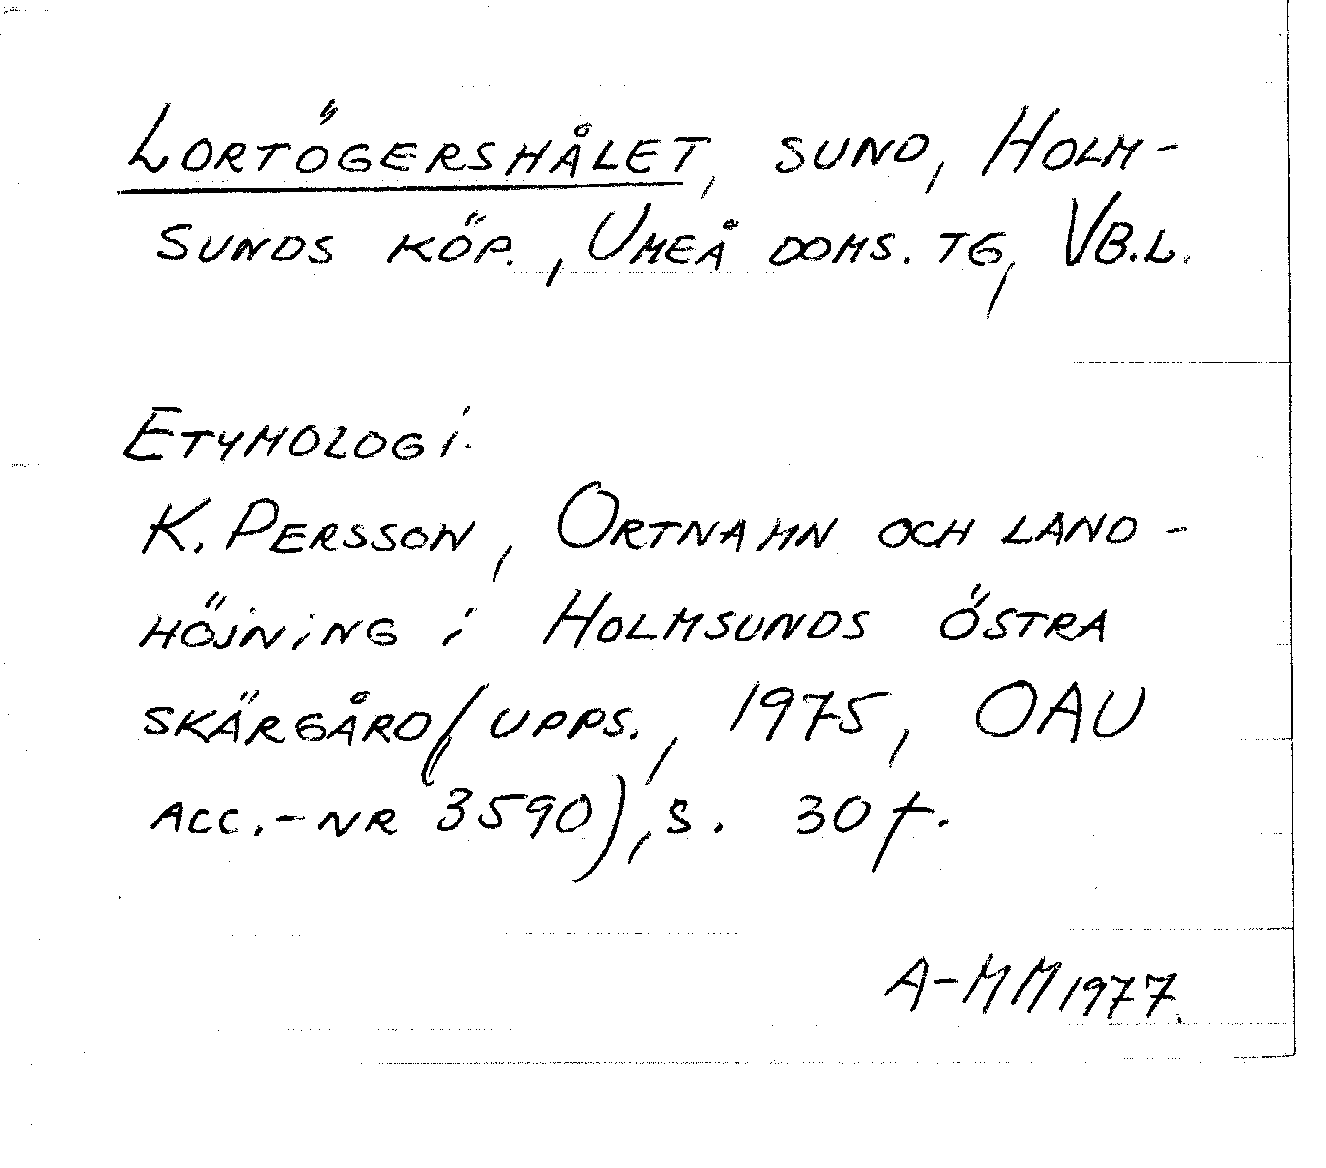 LORTÖGERSHÅLET, SUND, HOLM-
SUNDS KÖP., UMEÅ DOMS. TG, VB.L.
ETYMOLOGI.
K. PERSSON, ORTNAMN OCH LAND-
HÖJNING I HOLMSUNDS ÖSTRA
SKÄRGÅRD (UPPS., 1975, OAU
ACC.-NR 3590), S. 30 f.
A-MM 1977.